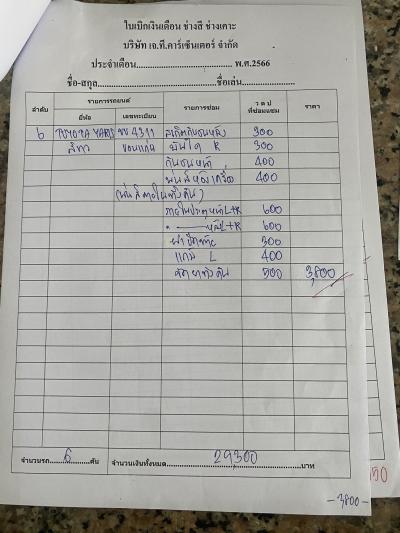 ใบเบิกเงินเดือน ช่างสี ช่างเคาะ
บริษัท เจ.ที.คาร์เซ็นเตอร์ จำกัด
ประจำเดือน................................ พ.ศ.2566
ชื่อ-สกุล........................................ชื่อเล่น......................
ลำดับ รายการรถยนต์ รายการซ่อม ว ด ป ที่ซ่อมแซม ราคา
ยี่ห้อ เลขทะเบียน
6 TOYOTA YARIS 4311 300
สีขาว ขอนแก่น บันได R 300
กันชนหน้า 400
400
(พ่นสีภายในทั้งคัน)
ภายในประตูหน้า L+R 600
" หลัง L+R 600
ฝาปิดท้าย 300
แก้ม L 400
ขัดยาทั้งคัน 500 3,800
จำนวนรถ.....6.....คัน จำนวนเงินทั้งหมด...........29300...........บาท
50
- 3,800 -